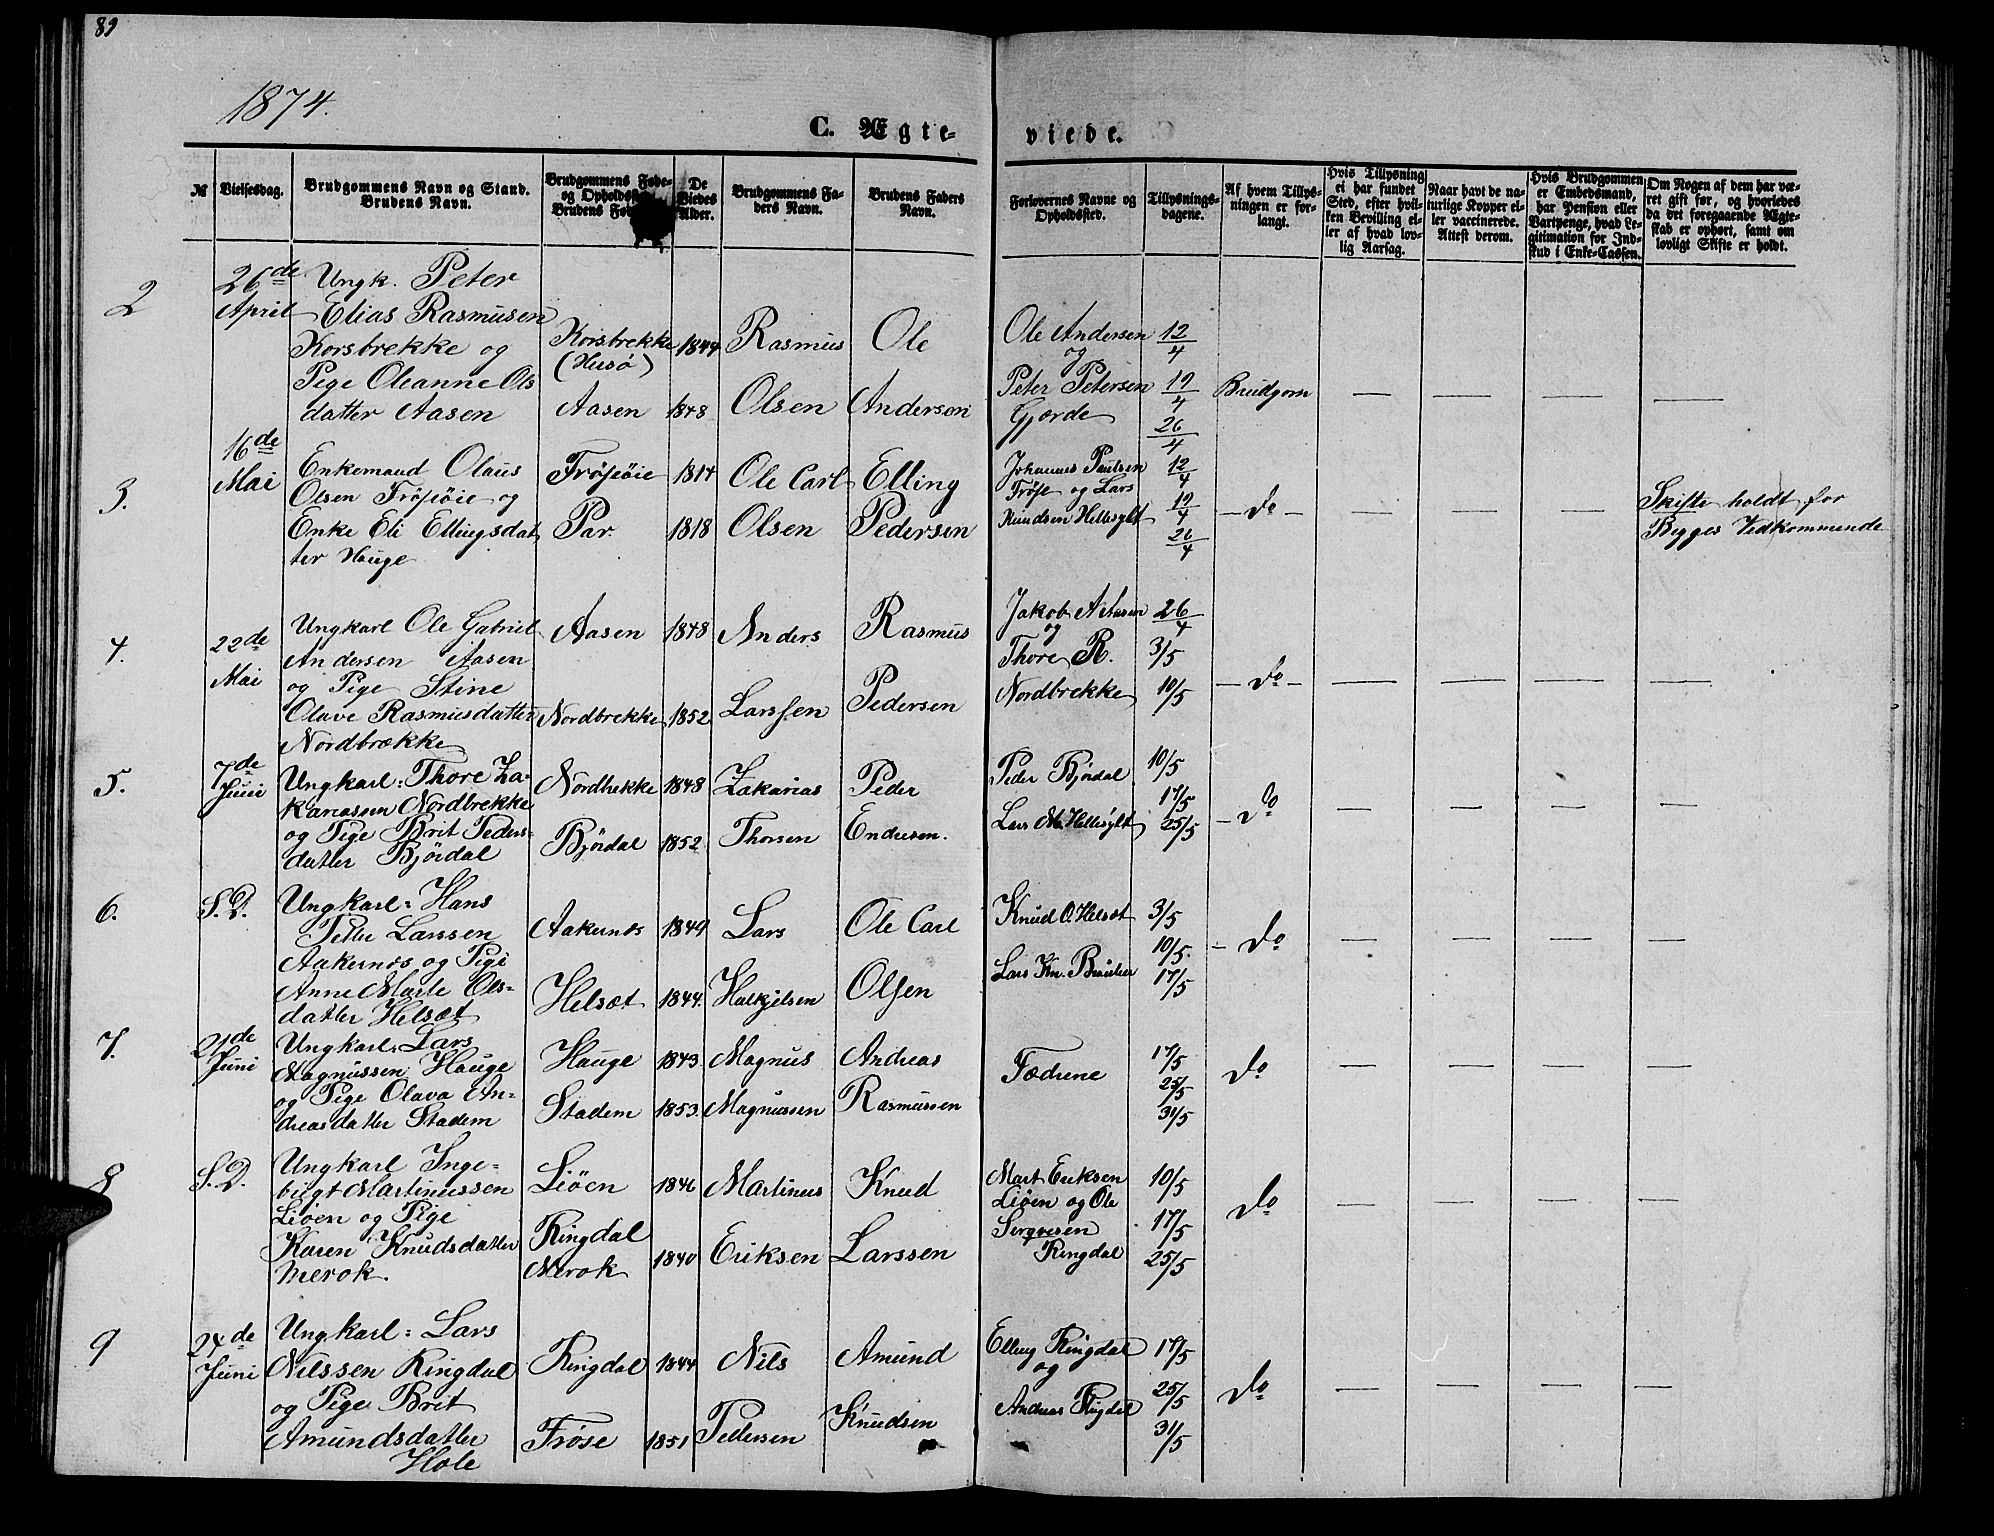 89
1874.
C. Ægte-
viede.
№
Vielsesdag.
Brudgommens Navn og Stand.
Brudens Navn.
Brudgommens Føde-
og Opholdsst
Brudens Fød
De
Viedes
Alder.
Brudgommens Fa-
ders Navn.
Brudens Faders
Navn.
Forlovernes Navne og
Opholdssted.
Tillysnings-
dagene.
Af hvem Tillys-
ningen er for-
langt.
Hvis Tillysning
ei har fundet
Sted, efter hvil-
ken Bevilling el-
ler af hvad lov-
lig Aarsag.
Naar havt de na-
turlige Kopper el-
ler vaccinerede.
Attest derom.
Hvis Brudgommen
er Embedsmand,
har Pension eller
Vartpenge, hvad Le-
gitimation for Ind-
skud i Enke-Cassen.
Om Nogen af dem har væ-
ret gift før, og hvorledes
da det foregaaende Ægte-
skab er ophørt, samt om
lovligt Skifte er holdt.
2
26de
April
Ungk. Peter
Elias Rasmusen
Korsbrekke og
Pige Oleanne Ols
datter Aasen
Korsbrekke
(Husø)
Aasen
1844
1848
Rasmus
Olsen
Ole
Anderson
Ole Andersen
og
Peter Petersen
Gjørde
12/4
19/4
26/4
Brudgom
— — — —
3.
16de
Mai
Enkemand Olaus
Olsen Frøsøie og
Enke Eli Ellingsdat
ter Hauge
Frøsøie
Par.
1814
1818
Ole Carl
Olsen
Elling
Pedersen
Johannes Paulsen
Frøse og Lars
Knudsen Hellesylt
12/4
19/4
26/4
— do —
— — —
Skifte holdt for
Begges Vedkommende
4.
22de
Mai
Ungkarl Ole Gabriel
Andersen Aasen
og Pige Stine
Olave Rasmusdatter
Nordbrække
Aasen
Nordbrekke
1848
1852
Anders
Larssen
Rasmus
Pedersen
Jakob A Aasen
og
Thore R.
Nordbrekke
26/4
3/5
10/5
— do —
— — — —
5.
7de
Juni
Ungkarl: Thore Za-
kariassen Nordbrekke
og Pige Brit Peders-
datter Bjørdal
Nordbekke
Bjørdal
1848
1852
Zakarias
Thorsen
Peder
Endresen.
Peder Bjørdal
Lars M. Hellesylt
10/5
17/5
25/5
— do
— — — —
6.
S. D.
Ungkarl: Hans
Petter Larssen
Aakernes og Pige
Anne Marte Ols-
datter Helsæt
Aakernes
Helsæt
1849
1844.
Lars
Halkjelsen
Ole Carl
Olsen
Knud O. Helsæt
Lars Kn.
3/5
10/5.
17/5
— do
— — — —
7.
21de
Juni
Ungkarl: Lars
Magnussen Hauge
og Pige Olava An-
dreasdatter Stadem
Hauge
Stadem
1843.
1853.
Magnus
Magnussen
Andreas
Rasmussen
Fædrene
17/5
25/5
31/5
do
— — — —
8
S. D.
Ungkarl Inge-
brigt Martinussen
Liøen og Pige
Karen Knudsdatter
Merok.
Liøen
Ringdal
Merok
1846
1840
Martinus
Eriksen
Knud
Larssen
Mart Eriksen
Liøen og Ole
Ringdal
10/5
17/5
25/5
do
— — — —
9
24de
Juni
Ungkarl: Lars
Nilssen Ringdal
og Pige Brit
Amundsdatter
Hole
Ringdal
Frøse
1844
1851
Nils
Pedersen
Amund
Knudsen
Elling Ringdal
og
Andreas Ringdal
17/5
25/5
31/5
do
— — — —